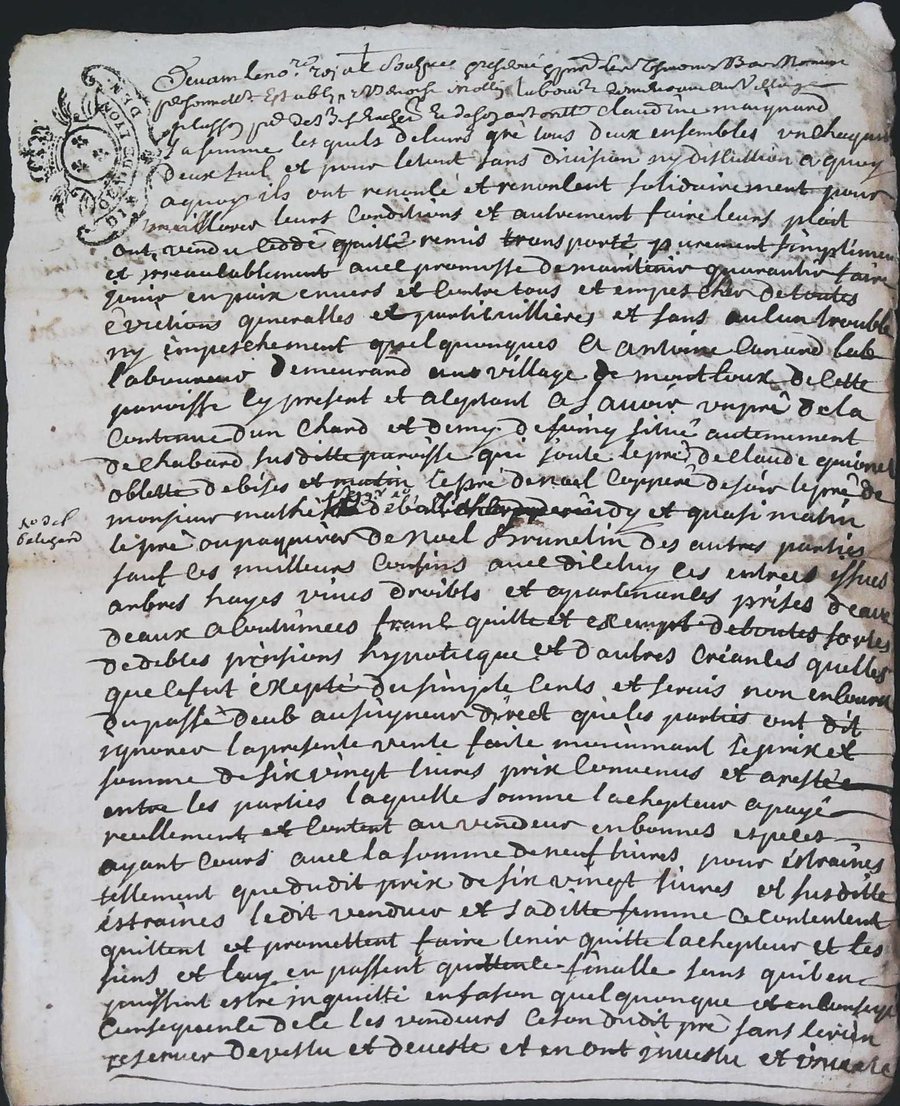 GENER. DE LYON
Devant le no.re royal soubsigné présent
personnellet establys Benoist laboureur demeurant au village
Claudine maignand
sa femme lesquels de leurs gré tous deux ensembles un chaqun
deux seul et pour le tout sans division ny discution a quoy
a quoy ils ont renoncé et renoncent solidairement pour
meilliorer leurs conditions et autrement faire leurs plait
ont vendu ceddé quitté remis transporté purement simplemen
et irrevocablement avec promesse de maintenir guarantir faire
jouir en paix envers et contre tous et empescher de toutes
évictions generalles et particullieres et sans aulcun trouble
ny empeschement quelquonques a antoine canard lab
laboureur demeurand au village de montloux de cette
paroisse cy present et aceptant a scavoir un pré de la
contenue dun chard et demy de foing situé au tenement
de chabard susditte paroisse qui joute le pré de claude guionet
oblette de bise et matin le pré de noel coppéré de soir le pré de
monsieur mathé de midy et quasi matin
le pré ou paquirer de noel brunelin des autres parties
sauf ces meilleurs confins avec dicelluy les entrees issues
arbres hayes vives droicts et apartenances prises deaux
deaux acoutumees franc quitte et exempt de toutes sortes
de debtes pensions hypoteique et dautres créances quelles
que ce fut exepté du simple cents et servis non encouru
du passé deub au seigneur direct que les parties ont dit
ignorer la presente vente faite moiennant le prix et
somme de six vingt livres prix convenus et arestée
entre les parties laquelle somme lachepteur a payé
reellement et content au vendeur en bonnes especes
ayant cours avec la somme de neuf livres pour estraines
tellement que dudit prix de six vingt livres et susditte
estraines ledit vendeur et saditte femme ce contentent
quittent et promettent faire tenir quitte lachepteur et les
siens et luy en passent quittance finalle sans quil en
puissint estre inquiétté en fason quelquonque et en conseqe
consequence de ce les vendeurs ce son dudit pré sans le rien
reserver devestu et deveste et en ont investu et investe